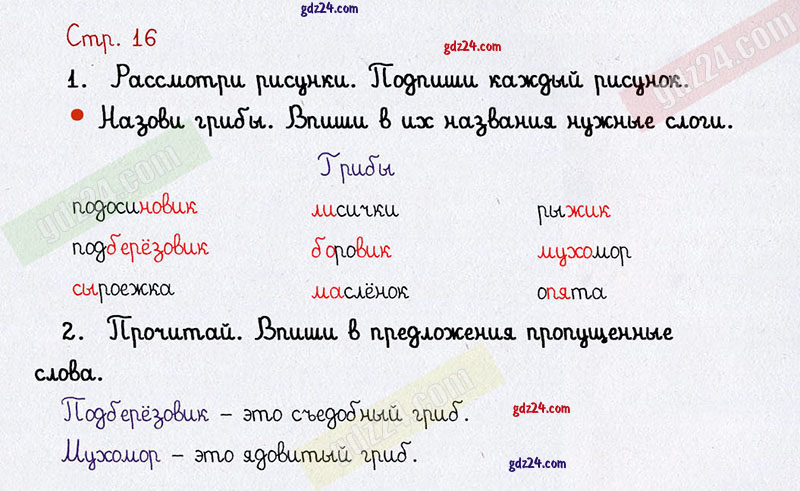 gdz24.com
Стр. 16
gdz24.com
gdz24.com
1. Рассмотри рисунки. Подпиши каждый рисунок.
• Назови грибы. Впиши в их названия нужные слоги.
gdz24.com
Грибы
подосиновик лисички рыжик
подберёзовик боровик мухомор
сыроежка маслёнок опята
2. Прочитай. Впиши в предложения пропущенные
слова.
gdz24.com
Подберёзовик – это съедобный гриб.
gdz24.com
Мухомор – это ядовитый гриб.
gdz24.com